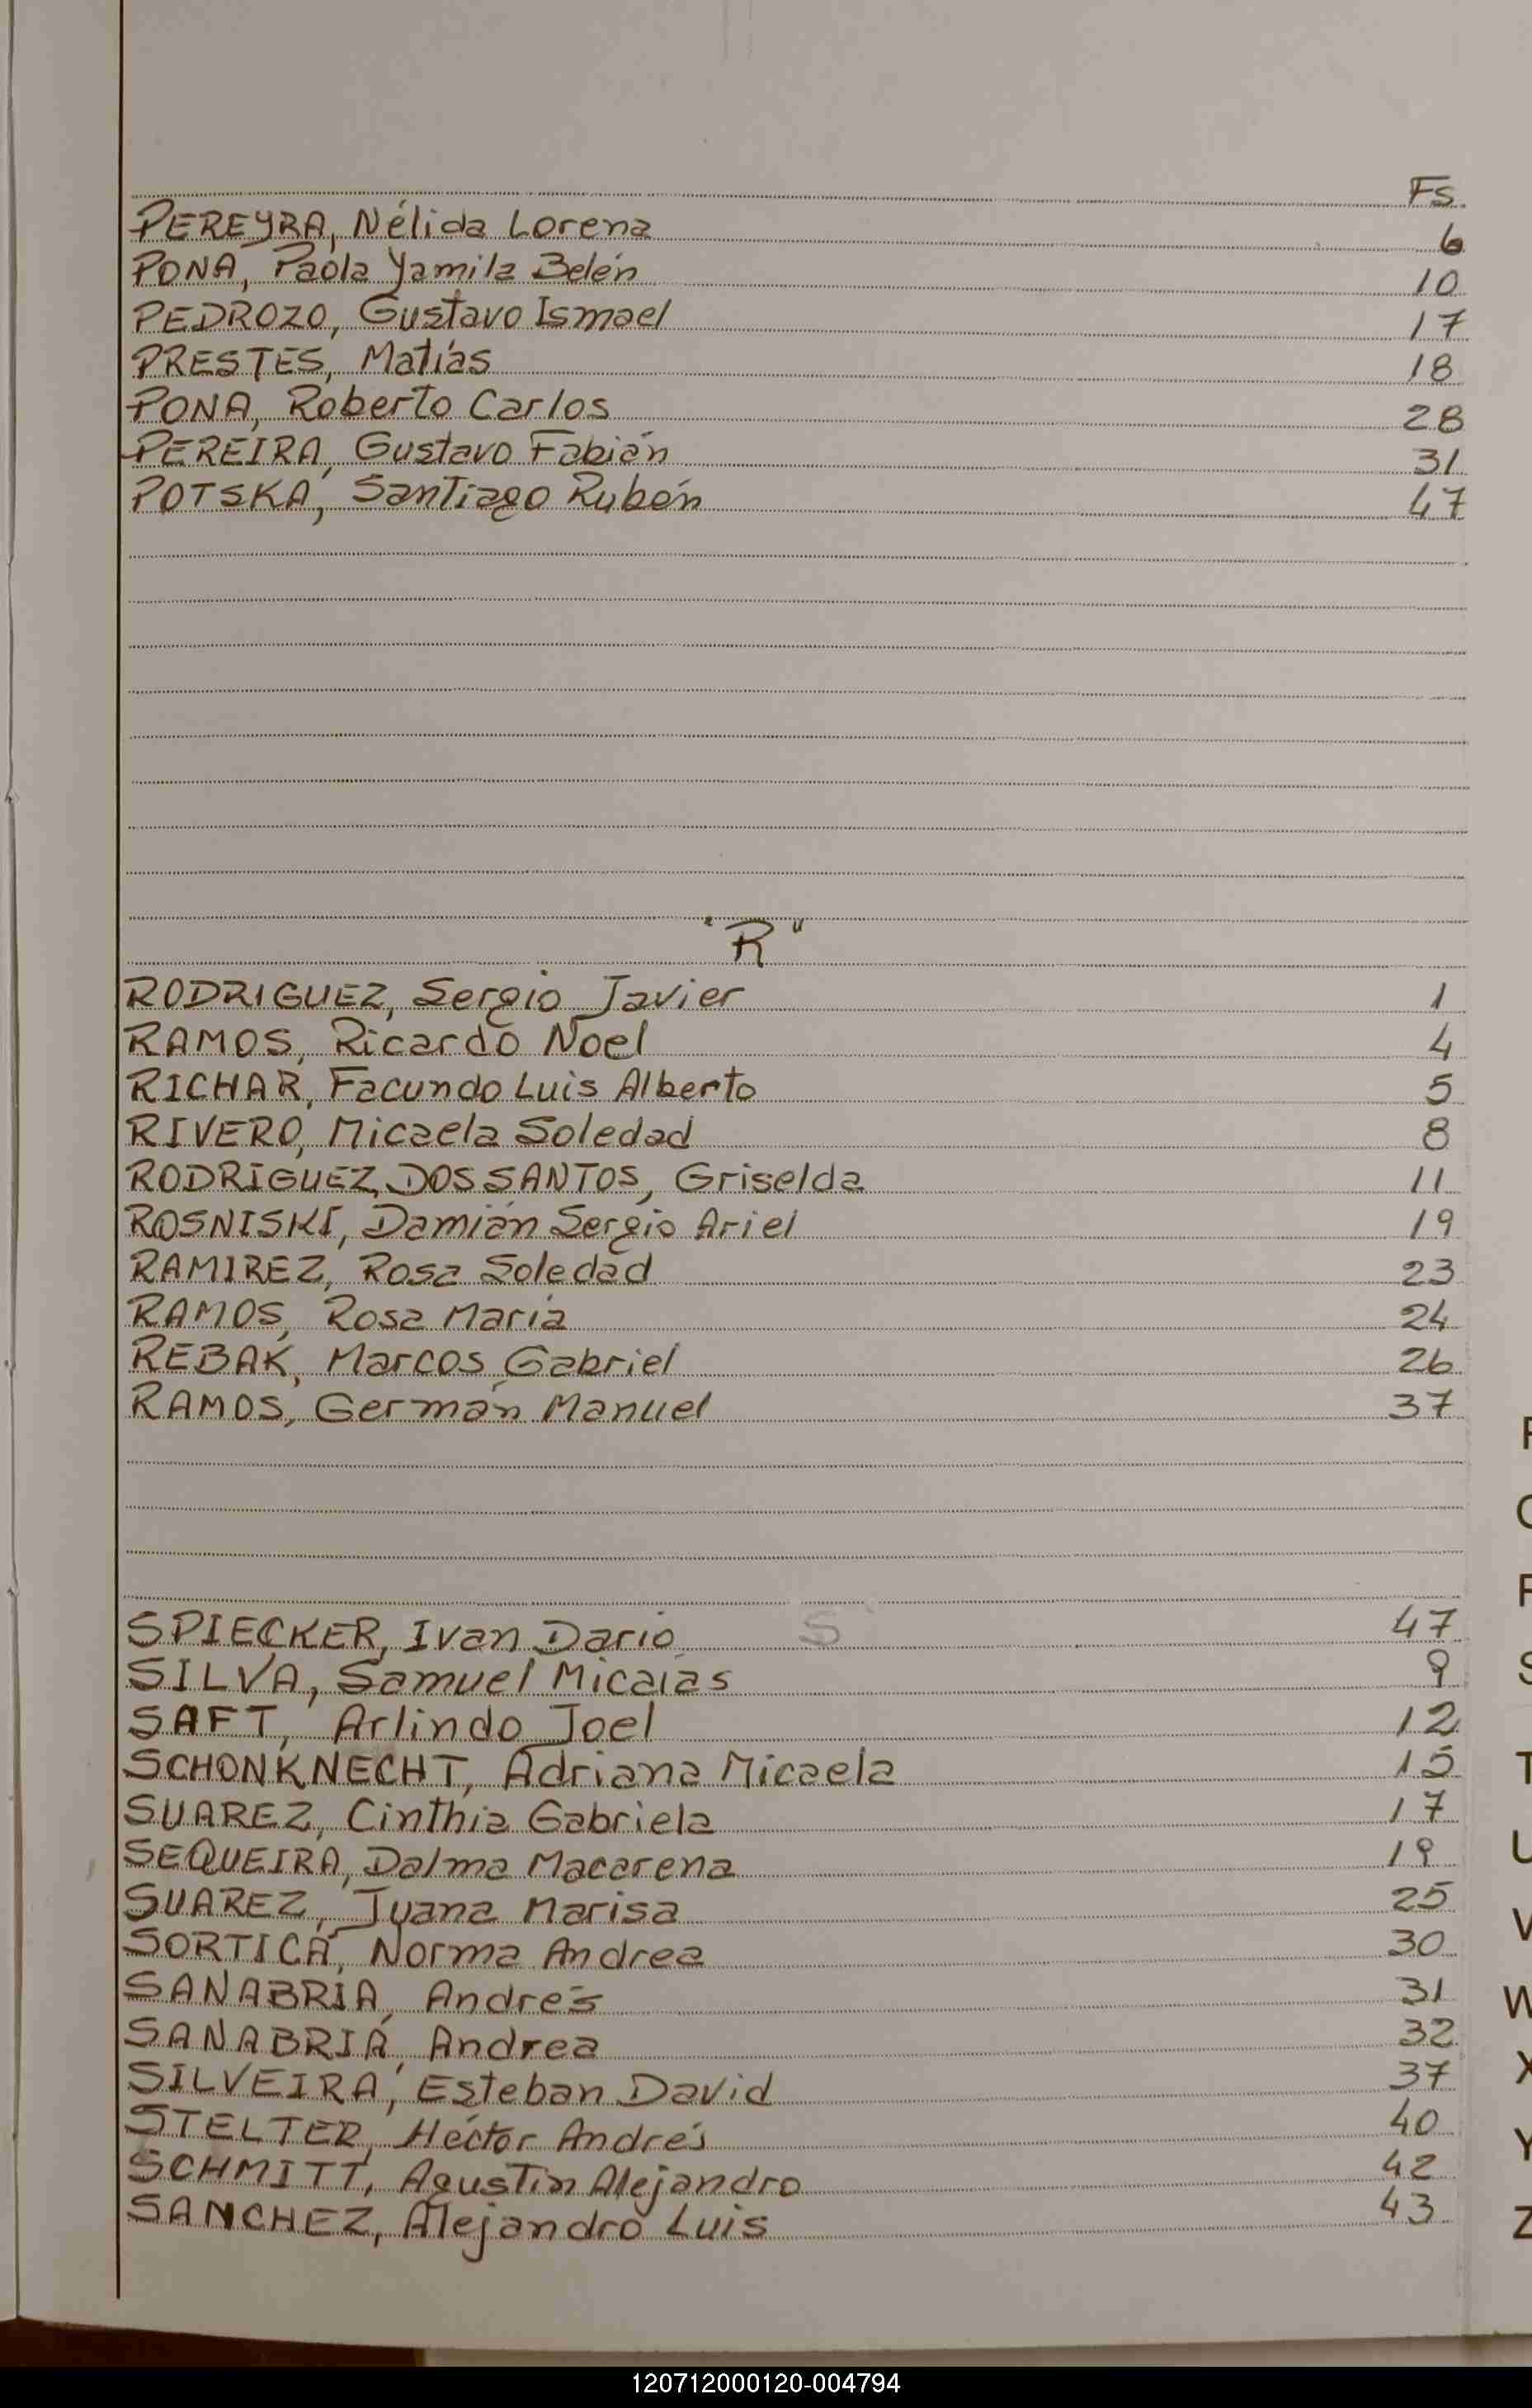 Fs.
PEREYRA, Nélida Lorena 6
PONA, Paola Yamila Belén 10
PEDROZO, Gustavo Ismael 17
PRESTES, Matías 18
PONA, Roberto Carlos 28
PEREIRA, Gustavo Fabián 31
POTSKA, Santiago Rubén 47
"R"
RODRIGUEZ, Sergio Javier 1
RAMOS, Ricardo Noel 4
RICHAR, Facundo Luis Alberto 5
RIVERO, Micaela Soledad 8
RODRIGUEZ DOS SANTOS, Griselda 11
ROSNISKI, Damián Sergio Ariel 19
RAMIREZ, Rosa Soledad 23
RAMOS, Rosa María 24
REBAK, Marcos Gabriel 26
RAMOS, Germán Manuel 37
S
SPIECKER, Ivan Dario 47
SILVA, Samuel Micaías 9
SAFT, Arlindo Joel 12
SCHONKNECHT, Adriana Micaela 15
SUAREZ, Cinthia Gabriela 17
SEQUEIRA, Dalma Macarena 19
SUAREZ, Juana Marisa 25
SORTICA, Norma Andrea 30
SANABRIA, Andrés 31
SANABRIA, Andrea 32
SILVEIRA, Esteban David 37
STELTER, Héctor Andrés 40
SCHMITT, Agustín Alejandro 42
SANCHEZ, Alejandro Luis 43
S
T
U
V
W
X
Y
Z
120712000120-004794